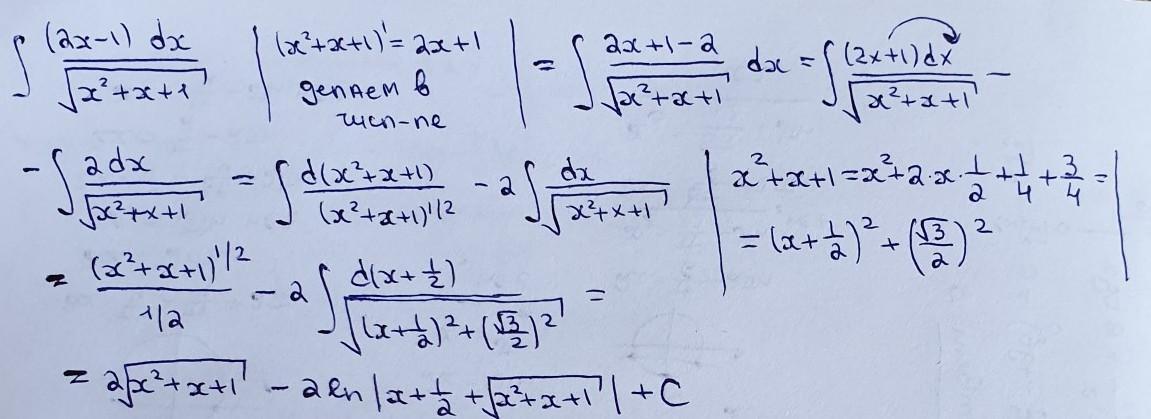 ∫ (2x-1) dx / √(x²+x+1) | (x²+x+1)' = 2x+1 делаем в числ-ле | = ∫ (2x+1-2) / √(x²+x+1) dx = ∫ (2x+1)dx / √(x²+x+1) -
- ∫ 2dx / √(x²+x+1) = ∫ d(x²+x+1) / (x²+x+1)^1/2 - 2 ∫ dx / √(x²+x+1) | x²+x+1 = x²+2·x·1/2 + 1/4 + 3/4 = = (x+1/2)² + (√3/2)² |
= (x²+x+1)^1/2 / 1/2 - 2 ∫ d(x+1/2) / √((x+1/2)² + (√3/2)²) =
= 2√(x²+x+1) - 2 ln |x+1/2+√(x²+x+1)| + C